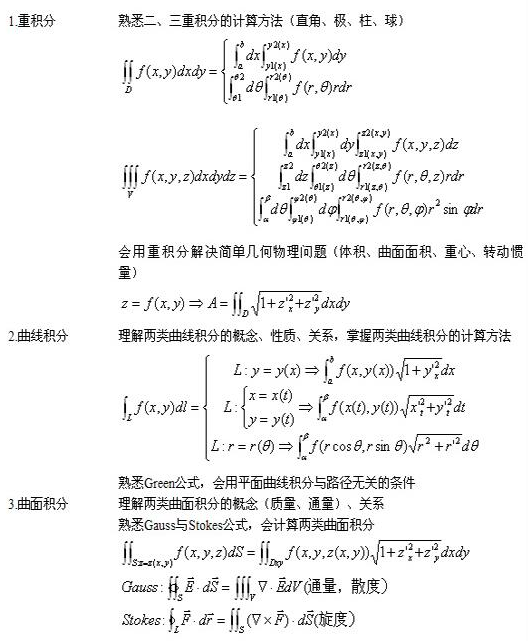 1.重积分 熟悉二、三重积分的计算方法（直角、极、柱、球）
∬_D f(x,y)dxdy = { ∫_a^b dx∫_{y1(x)}^{y2(x)} f(x,y)dy
∫_{θ1}^{θ2} dθ∫_{r1(θ)}^{r2(θ)} f(r,θ)rdr
∭_V f(x,y,z)dxdydz = { ∫_a^b dx∫_{y1(x)}^{y2(x)} dy∫_{z1(x,y)}^{z2(x,y)} f(x,y,z)dz
∫_{z1}^{z2} dz∫_{θ1(z)}^{θ2(z)} dθ∫_{r1(z,θ)}^{r2(z,θ)} f(r,θ,z)rdr
∫_α^β dθ∫_{φ1(θ)}^{φ2(θ)} dφ∫_{r1(θ,φ)}^{r2(θ,φ)} f(r,θ,φ)r² sin φdr
会用重积分解决简单几何物理问题（体积、曲面面积、重心、转动惯
量）
z = f(x,y) ⇒ A = ∬_D √(1+z'_x²+z'_y²)dxdy
2.曲线积分 理解两类曲线积分的概念、性质、关系，掌握两类曲线积分的计算方法
∫_L f(x,y)dl = { L: y = y(x) ⇒ ∫_a^b f(x,y(x))√(1+y'_x²)dx
L: { x = x(t)
y = y(t) ⇒ ∫_α^β f(x(t),y(t))√(x'_t²+y'_t²)dt
L: r = r(θ) ⇒ ∫_α^β f(r cosθ,r sin θ)√(r²+r'²)dθ
熟悉Green公式，会用平面曲线积分与路径无关的条件
3.曲面积分 理解两类曲面积分的概念（质量、通量）、关系
熟悉Gauss与Stokes公式，会计算两类曲面积分
∬_{S:z=z(x,y)} f(x,y,z)dS = ∬_{Dxy} f(x,y,z(x,y))√(1+z'_x²+z'_y²)dxdy
Gauss: ∯_S E⃗·dS⃗ = ∭_V ∇·E⃗dV(通量，散度)
Stokes: ∮_L F⃗·dr⃗ = ∬_S (∇×F⃗)·dS⃗(旋度)